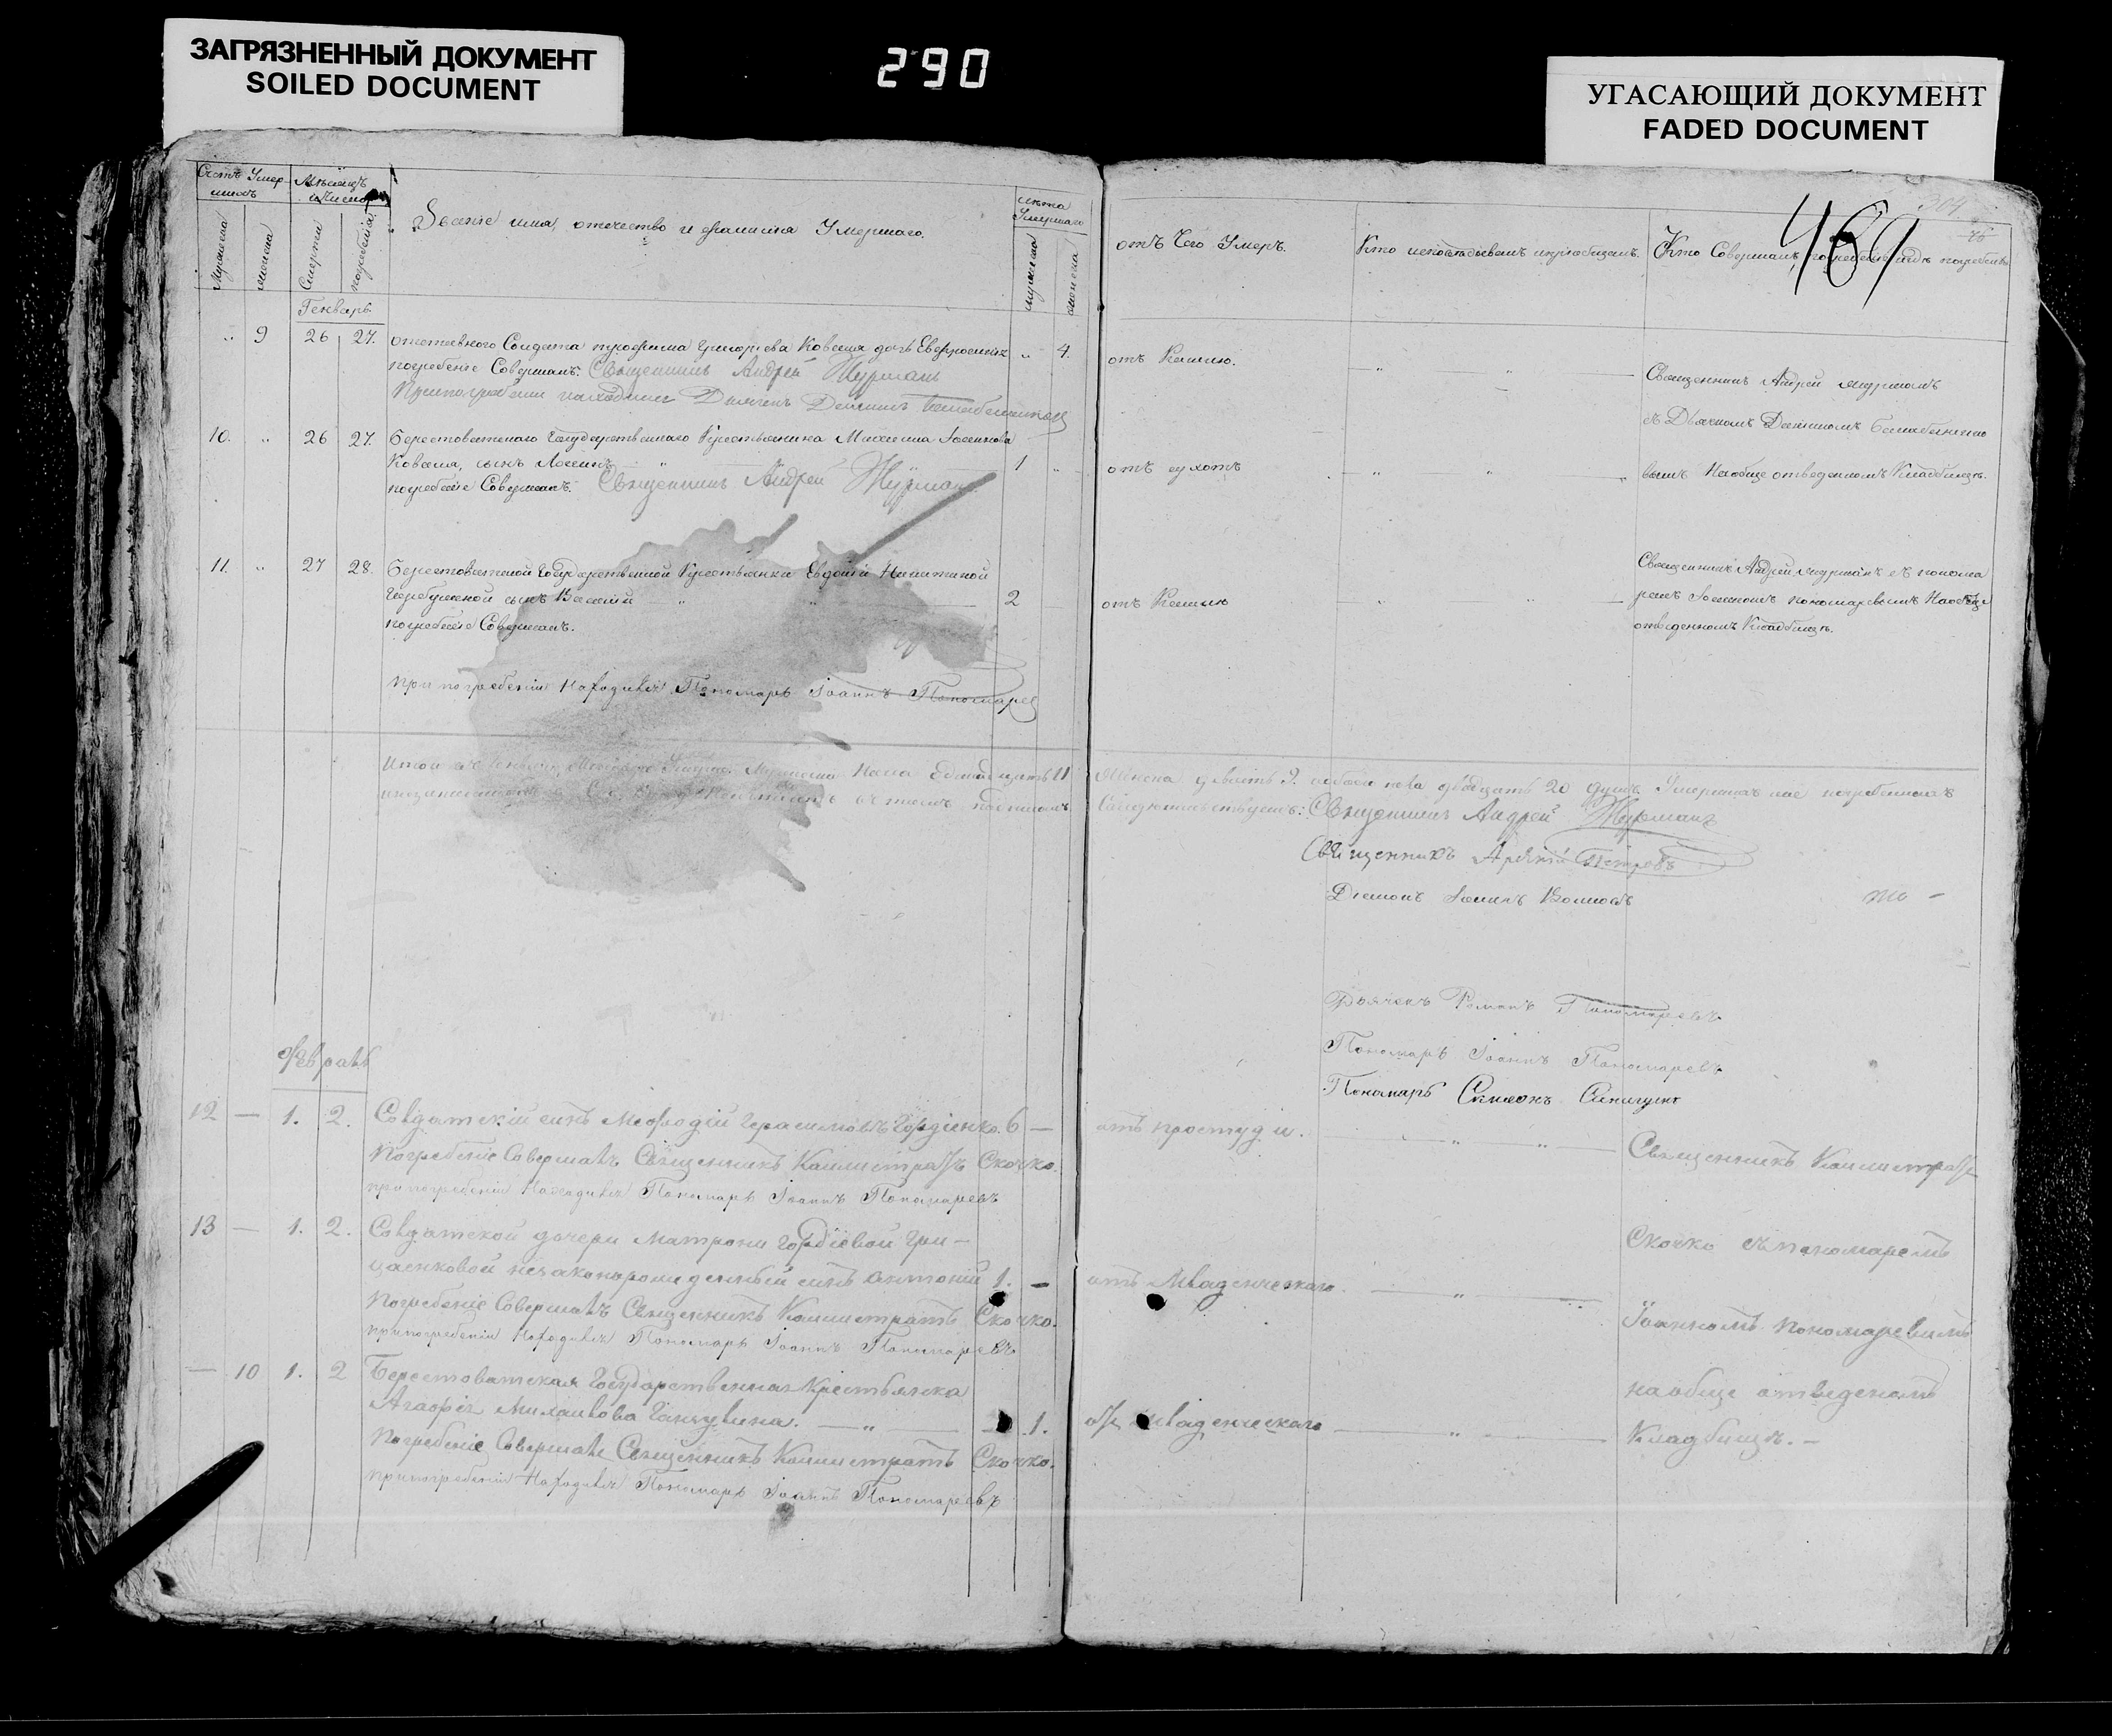 ЗАГРЯЗНЕННЫЙ ДОКУМЕНТ
SOILED DOCUMENT
290
УГАСАЮЩИЙ ДОКУМЕНТ
FADED DOCUMENT
Счетъ Умер
шихъ
Мѣсяцъ
и число
Званіе имя, отечество и фамилія Умершаго.
лѣта
Умершаго
мужеска
женска
Смерти
погребенія
мужеска
женска
отъ Чего Умеръ.
Кто исповѣдывалъ и пріобщалъ.
Кто Совершалъ погребеніе и гдѣ погребенъ
469
304
Генварь
9 26 27. отставного Солдата трофима Григорьева Коваля дочь Евфросинія „ 4.
погребеніе Совершалъ: Священникъ Андрей Журманъ
При погребеніи находился Дьячекъ
отъ Кашлю.
Священникъ Андрей Журманъ
съ Дьячкомъ
10. „ 26 27. Берестоватскаго Государственнаго Крестьянина Михаила
Коваля, сынъ 1 „
погребеніе Совершалъ: Священникъ Андрей Журманъ
отъ сухотъ
На обще отведенномъ Кладбищѣ.
11. „ 27 28. Берестоватской Государственной Крестьянки Евдокіи Никитиной
сынъ Василій 2
погребеніе Совершалъ.
При погребеніи Находился Пономарь Іоаннъ Пономарев
отъ Кашлю
Священникъ Андрей Журманъ съ понома
ремъ Іоанномъ пономаревымъ На обще
отведенномъ Кладбищѣ.
Итого въ Генварѣ Мѣсяцѣ Умерло Мужеска пола Одинадцать 11
Женска девять 9. обоего пола двадцать 20 душъ. Умершихъ погребенныхъ
Свидетельствуемъ: Священникъ Андрей Журманъ
Священникъ Петровъ
Діаконъ Іоаннъ
Дьячекъ Романъ Пономаревъ
Пономарь Іоаннъ Пономаревъ
Пономарь Симеонъ
Февраль
12 — 1. 2. Солдатскій сынъ Мефодій Герасимовъ Гордіенко. 6 —
Погребеніе Совершалъ Священникъ Каллистратъ Скочко.
при погребеніи Находился Пономарь Іоаннъ Пономаревъ
отъ простуди.
Священникъ Каллистратъ
13 — 1. 2. Солдатской дочери Матрони Гордіевой Гри-
ценковой незаконорожденный синъ Антоній 1. —
Погребеніе Совершалъ Священникъ Каллистратъ Скочко.
при погребеніи Находился Пономарь Іоаннъ Пономаревъ
отъ Младенческаго.
Скочко съ пономаремъ
Іоанномъ пономаревимъ
— 10 1. 2 Берестоватская Государственная Крестьянка
Агафія Михайлова — 1.
Погребеніе Совершалъ Священникъ Каллистратъ Скочко.
при погребеніи Находился Пономарь Іоаннъ Пономаревъ
отъ младенческаго
на обще отведеномъ
Кладбищѣ. —